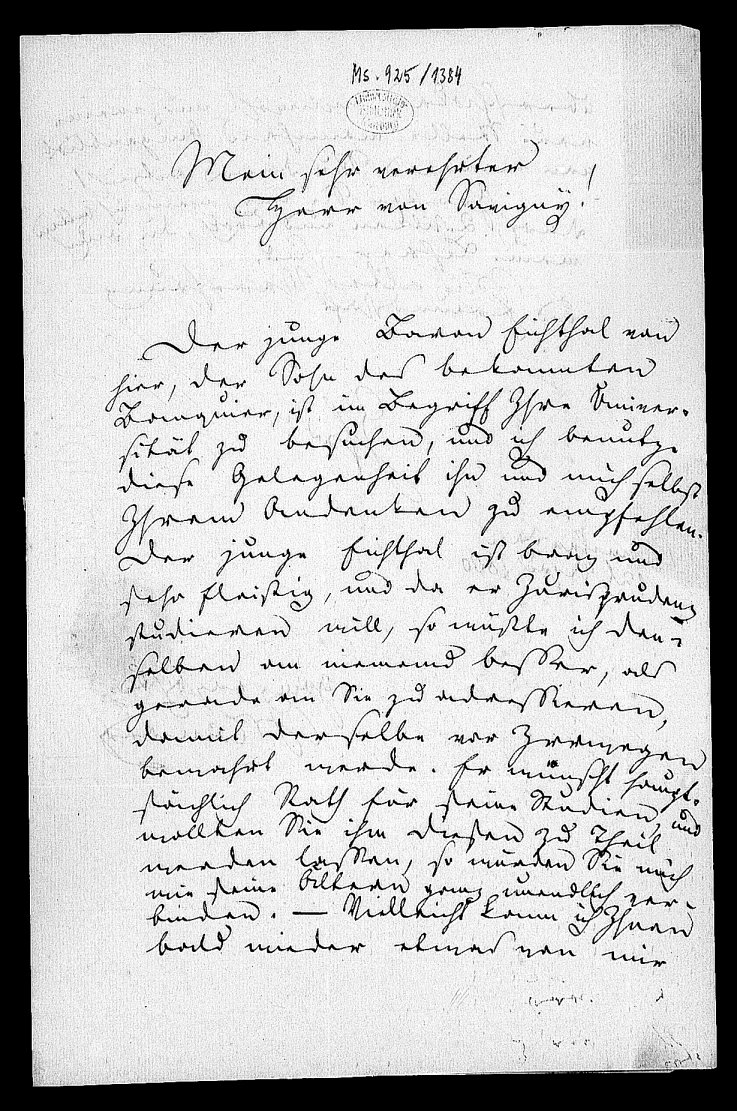 Ms. 925/1384
Mein sehr verehrter
Herr von Savigny!
Der junge Baron Eichthal von
hier, der Sohn des bekannten
Banquier, ist im Begriff Ihre Univer-
sität zu besuchen, und ich benutze
diese Gelegenheit ihn und mich selbst
Ihrem Andenken zu empfehlen.
Der junge Eichthal ist brav und
sehr fleißig, und da er Jurisprudenz
studieren will, so wüßte ich den-
selben an niemand besser, als
gerade an Sie zu adressieren,
damit derselbe vor Irrwegen
bewahrt werde. Er wünscht haupt-
sächlich Rath für seine Studien, und
wollten Sie ihm diesen zu Theil
werden lassen, so würden Sie mich
wie seine Ältern ganz unendlich ver-
binden. — Vielleicht kann ich Ihnen
bald wieder etwas von mir